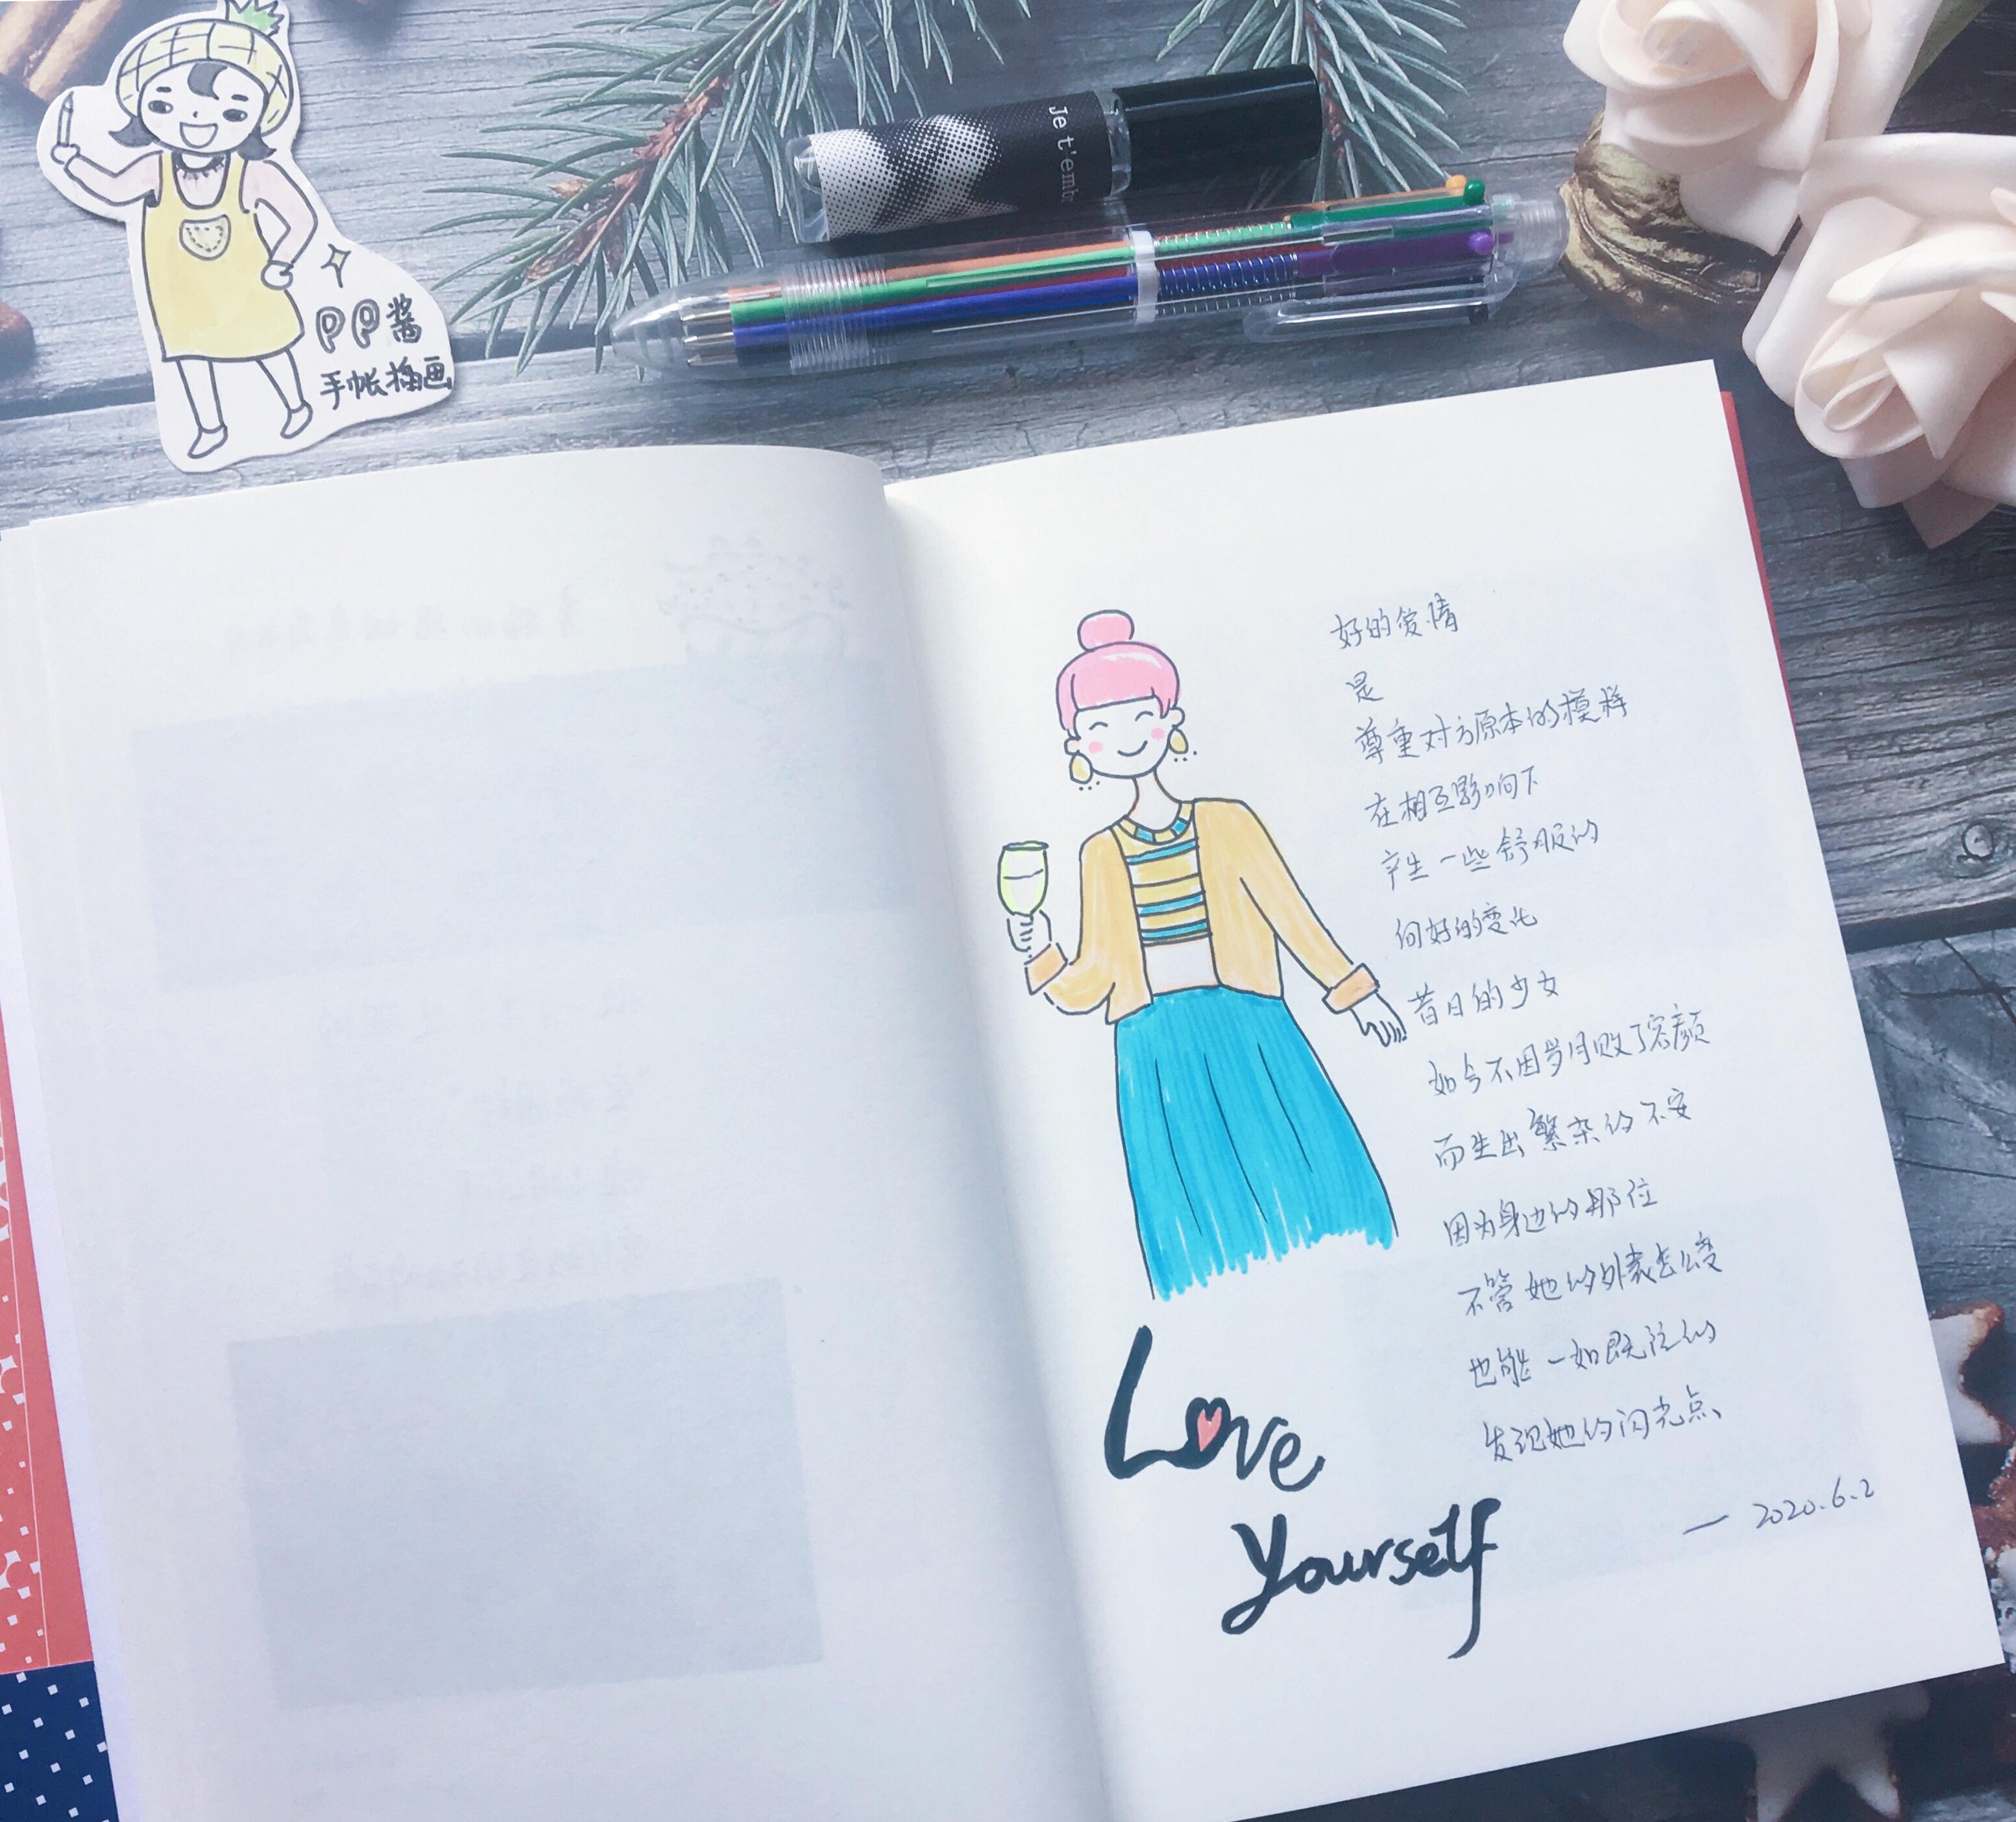 PP酱
手帐插画
Je t'em
好的爱情
是
尊重对方原本的模样
在相互影响下
产生一些舒服的
向好的变化
昔日的少女
如今不因岁月败了容颜
而生出繁杂的不安
因为身边的那位
不管她的外表怎么变
也能一如既往的
发现她的闪光点
— 2020.6.2
Love
Yourself